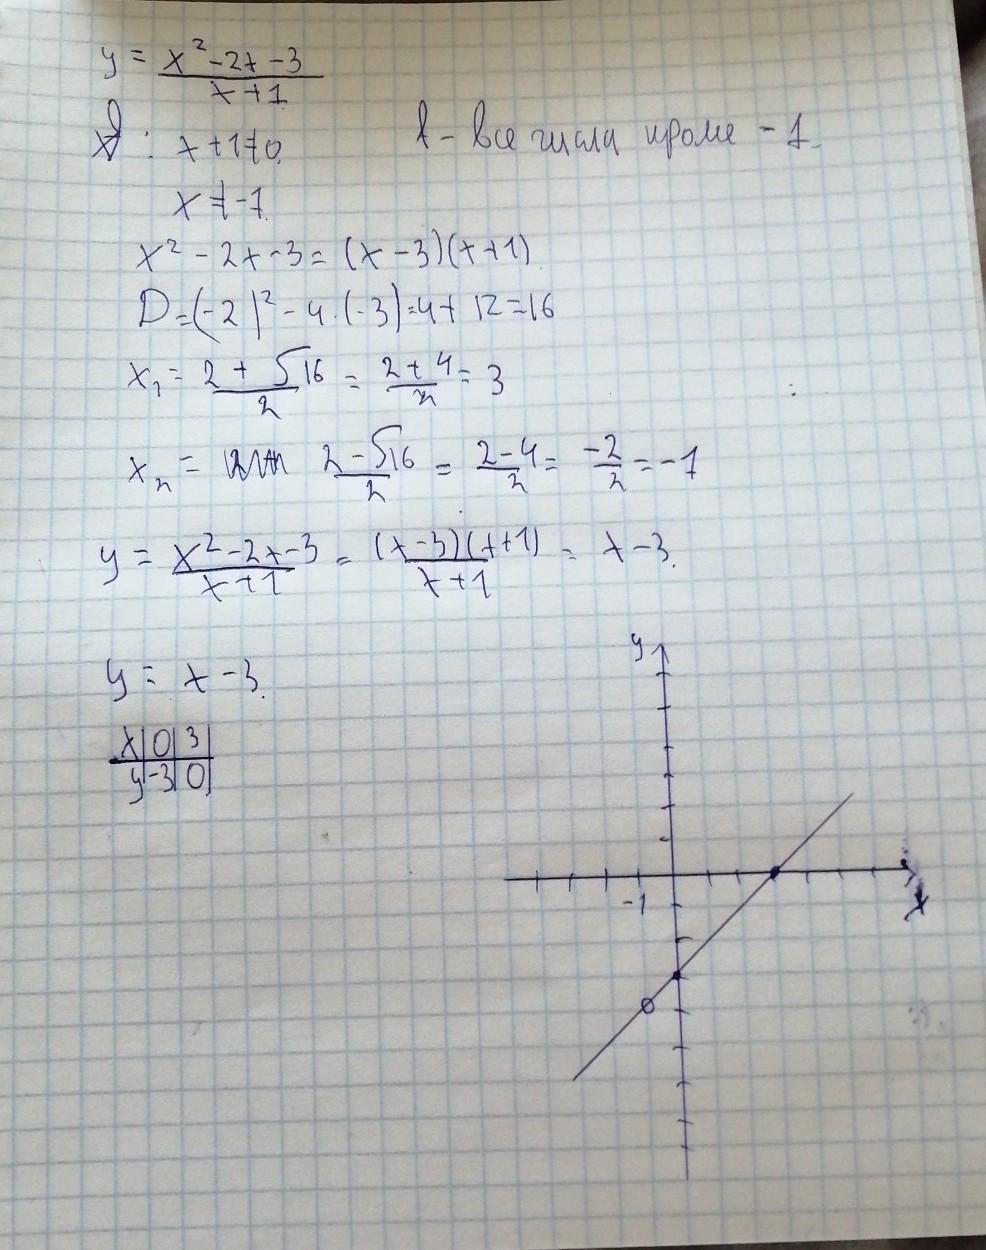 y = x² - 2x - 3 / x + 1
D: x + 1 ≠ 0. - все числа кроме - 1.
x ≠ -1.
x² - 2x - 3 = (x - 3)(x + 1)
D = (-2)² - 4 · (-3) = 4 + 12 = 16
x₁ = 2 + √16 / 2 = 2 + 4 / 2 = 3
x₂ = 2 - √16 / 2 = 2 - 4 / 2 = -2 / 2 = -1
y = x² - 2x - 3 / x + 1 = (x - 3)(x + 1) / x + 1 = x - 3.
y = x - 3.
x | 0 | 3 |
y | -3 | 0 |
y
-1
x